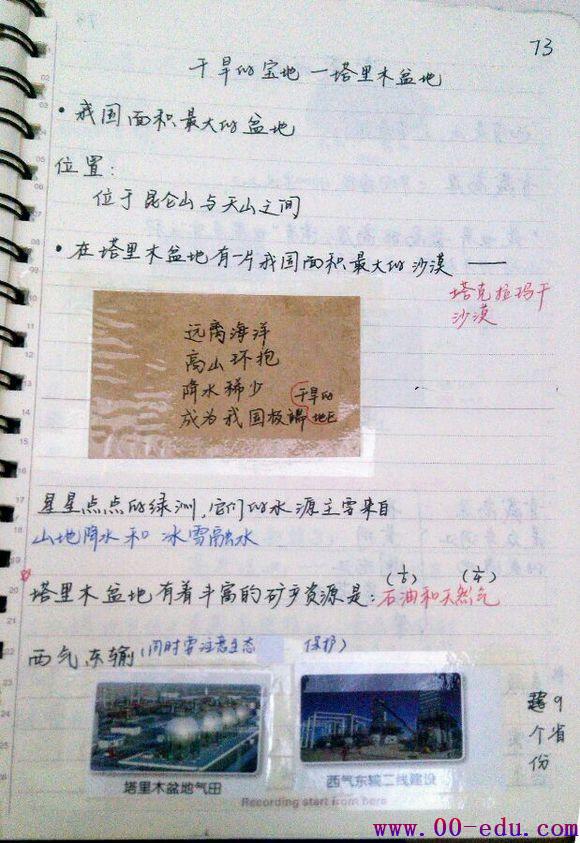 73
干旱的宝地—塔里木盆地
•我国面积最大的盆地
位置:
位于昆仑山与天山之间
•在塔里木盆地有一片我国面积最大的沙漠——
塔克拉玛干
沙漠
远离海洋
高山环抱
降水稀少
成为我国极端干旱的地区
星星点点的绿洲,它们的水源主要来自
山地降水和冰雪融水
塔里木盆地有着丰富的矿产资源是:石油和天然气
西气东输(同时要注意生态 保护)
跨9
个省
份
塔里木盆地气田
西气东输二线建设
Recording start from here
www.00-edu.com